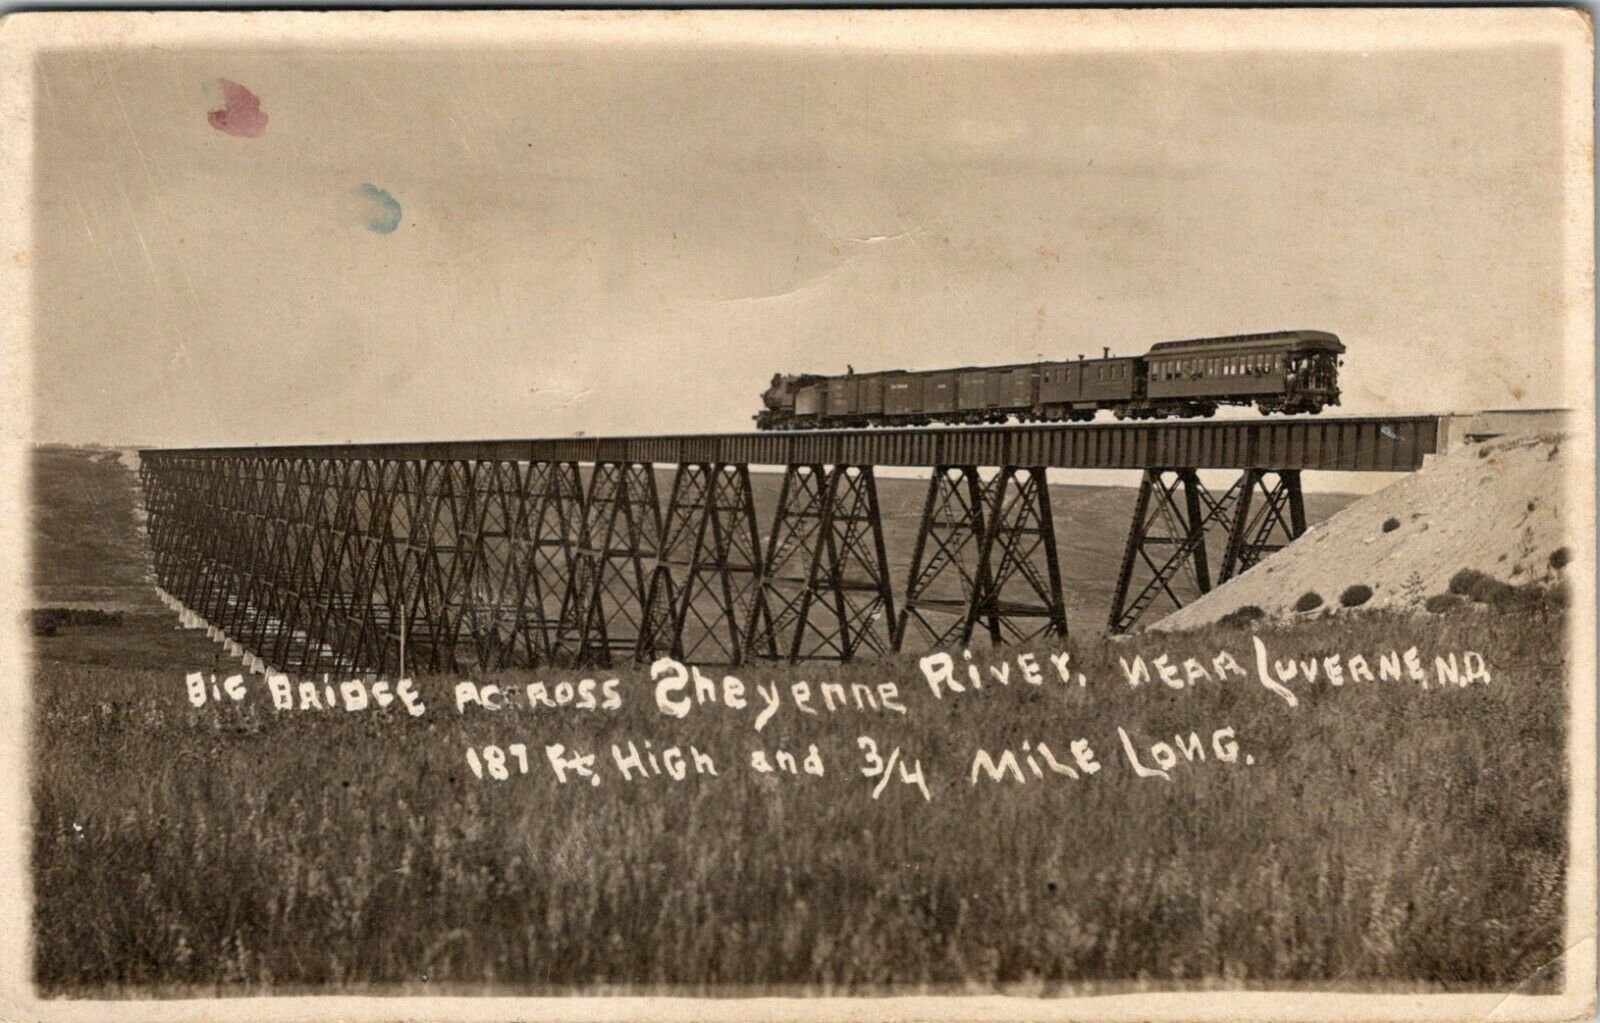 BIG BRIDGE ACROSS Sheyenne RIVEr, NEAR LUVERNE, N.D.
187 Ft, HIGH and 3/4 MILE LONG.